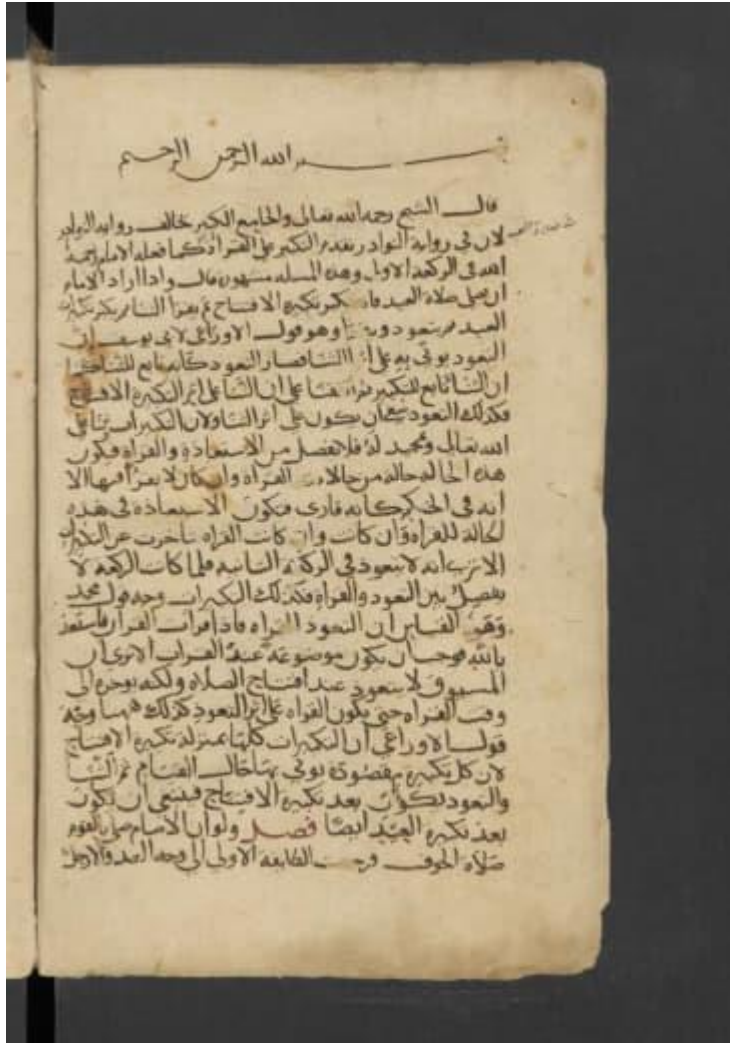 بسم الله الرحمن الرحيم
قال الشيخ رحمه الله تعالى والجامع الكبير خالف رواية النوادر
لان في رواية النوادر يقدم التكبير على القراة كما فعله الامام رحمه
الله في الركعة الاولى وهذه المسلة مشهورة قال واذا اراد الامام
ان يصلي صلاة العيد فانه يكبر تكبيرة الافتتاح ثم يقرا الثنا ثم يكبر تكبيرات
العيد ثم يتعود وهو قول الاوزاعي لابي يوسف ان
التعود يوتى به على اثر الثنا فصار التعود كانه تابع للثنا كما
ان الثنا تابع للتكبير ان الثنا على اثر التكبيرة الافتتاح
فكذلك التعود يجب ان يكون على اثر الثنا ولان التكبيرات ثنا على
الله تعالى وتمجيد له فلا تفصل من الاستعاذة والقراة فيكون
هذه الحالة حالة من حالات القراة وان كان لا يقرا فيها الا
انه في الحكم كانه قارى فيكون الاستعاذة في هذه
الحالة للقراة وان كانت وان كانت القراة تاخرت عن التكبيرات
الا ترى انه لا يتعود في الركعة الثانية فلما كانت الركعة لا
تفصل بين التعود والقراة فكذلك التكبيرات وجه قول محمد
وهو القياس ان التعود القراة فاذا قرات القران فاستعذ
بالله فوجب ان يكون موضوعة عند القراة الا ترى ان
المسبوق لا يتعوذ عند افتتاح الصلاة ولكنه يوخره الى
وقت القراة حتى يكون القراة على اثر التعود كذلك ههنا وجه
قول الاوزاعي ان التكبيرات كلها بمنزلة تكبيرة الافتتاح
لان كل تكبيرة مقصودة يوتى بها حال القيام ثم الثنا
والتعود يكونان بعد تكبيرة الافتتاح فينبغي ان يكون
بعد تكبيرة العيد ايضا فصل ولو ان الامام صلى بالقوم
صلاة الخوف الطايفة الاولى الى وجه العدو